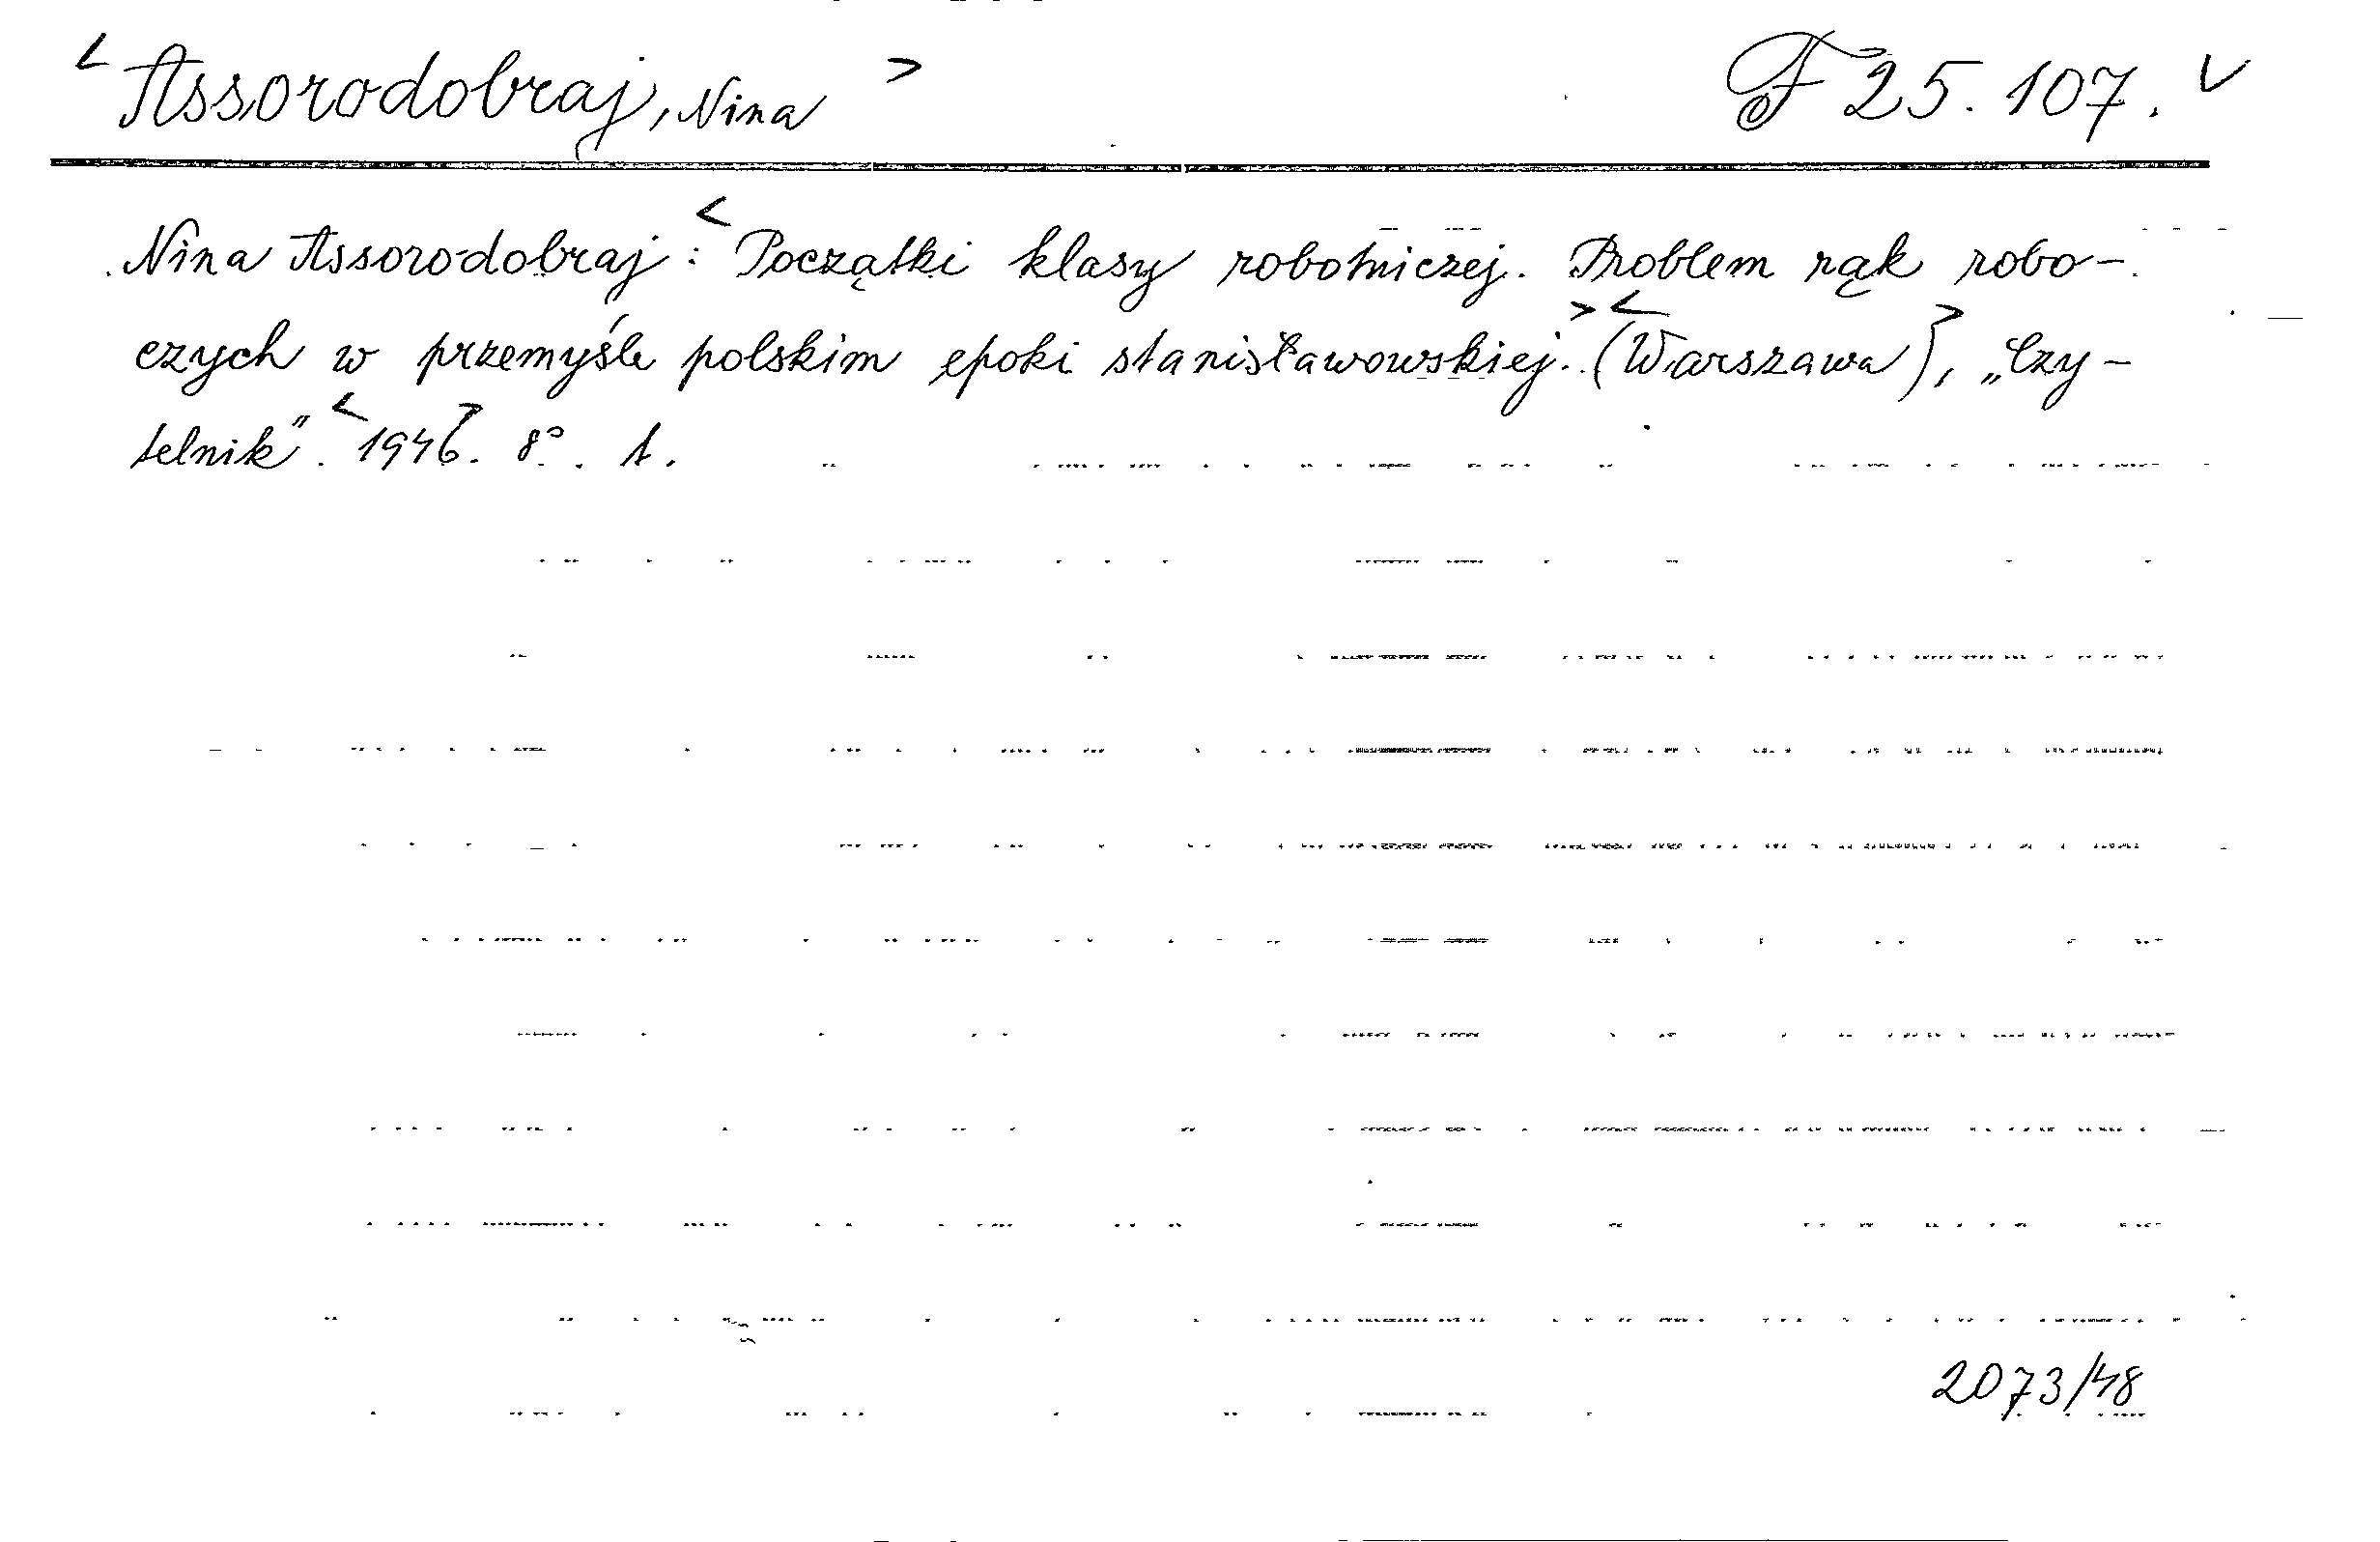 < Assorodobraj, Nina > F 25.107. ✓
Nina Assorodobraj : < Początki klasy robotniczej. Problem rąk robo-
czych w przemyśle polskim epoki stanisławowskiej. > < (Warszawa) >, „Czy-
telnik". < 1946 >. 8°. 1.
2073/48